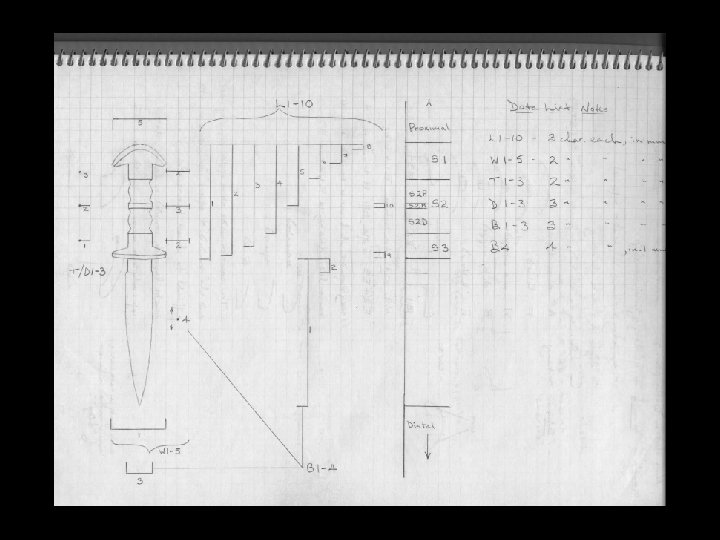 L1-10
A
Data List Notes
Proximal
L1-10 - 3 char. each, in mm
S1
W1-5 - 2 " " " "
T1-3 2 " " " "
S2P
S2M S2
D1-3 3 " " " "
S2D
B1-3 3 " " " "
S3
B4 4 " "
T/D1-3
5
3
2
1
4
3
2
1
2
3
4
5
6
7
8
10
9
2
1
4
Distal
1
W1-5
3
B1-4